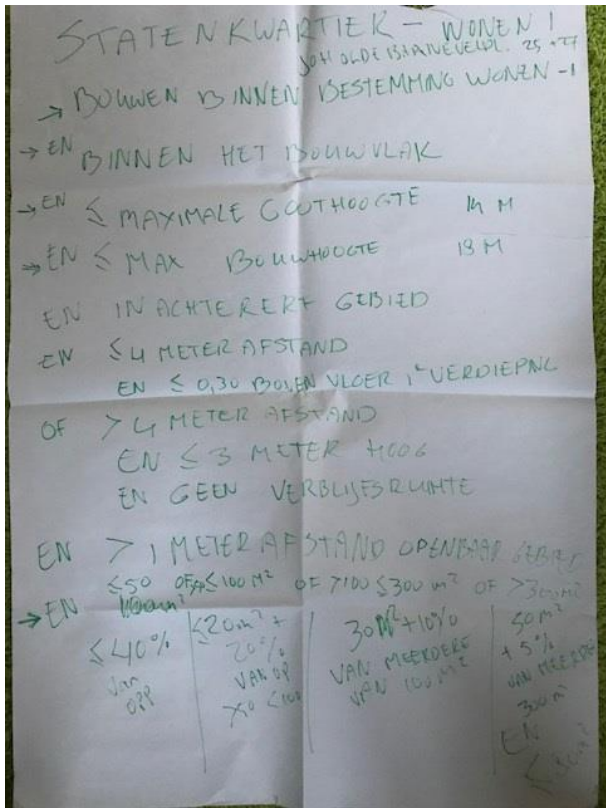 STATENKWARTIER - WONEN 1
JOH OLDEBARNEVELDL. 25 + 27
→ BOUWEN BINNEN BESTEMMING WONEN - 1
→ EN BINNEN HET BOUWVLAK
→ EN ≤ MAXIMALE GOOTHOOGTE 14 M
→ EN ≤ MAX BOUWHOOGTE 18 M
EN IN ACHTERERF GEBIED
EN ≤ 4 METER AFSTAND
EN ≤ 0,30 BOVEN VLOER 1e VERDIEPNG
OF > 4 METER AFSTAND
EN ≤ 3 METER HOOG
EN GEEN VERBLIJFSRUIMTE
EN > 1 METER AFSTAND OPENBAAR GEBIED
≤50 OF ≤100 M² OF >100 ≤300 m² OF >300 m²
→ EN
≤40%
van
opp
≤20m² +
20%
VAN OP
>50 <100
30 M² + 10%
VAN MEERDERE
VAN 100 M²
50 m²
+ 5%
VAN MEERDERE
300 m²
EN